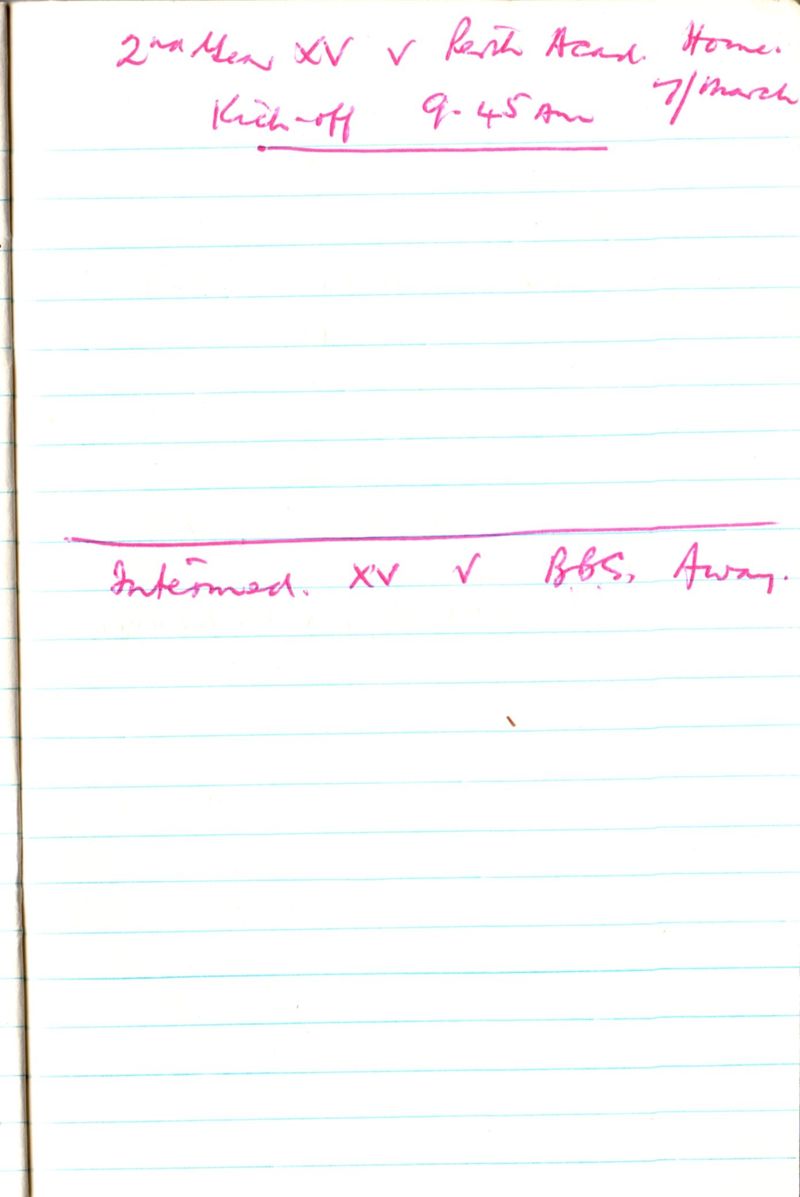 2nd Year XV v Perth Acad. Home.
7/March
Kick-off 9.45 Am
Intermed. XV v B.G.S. Away.